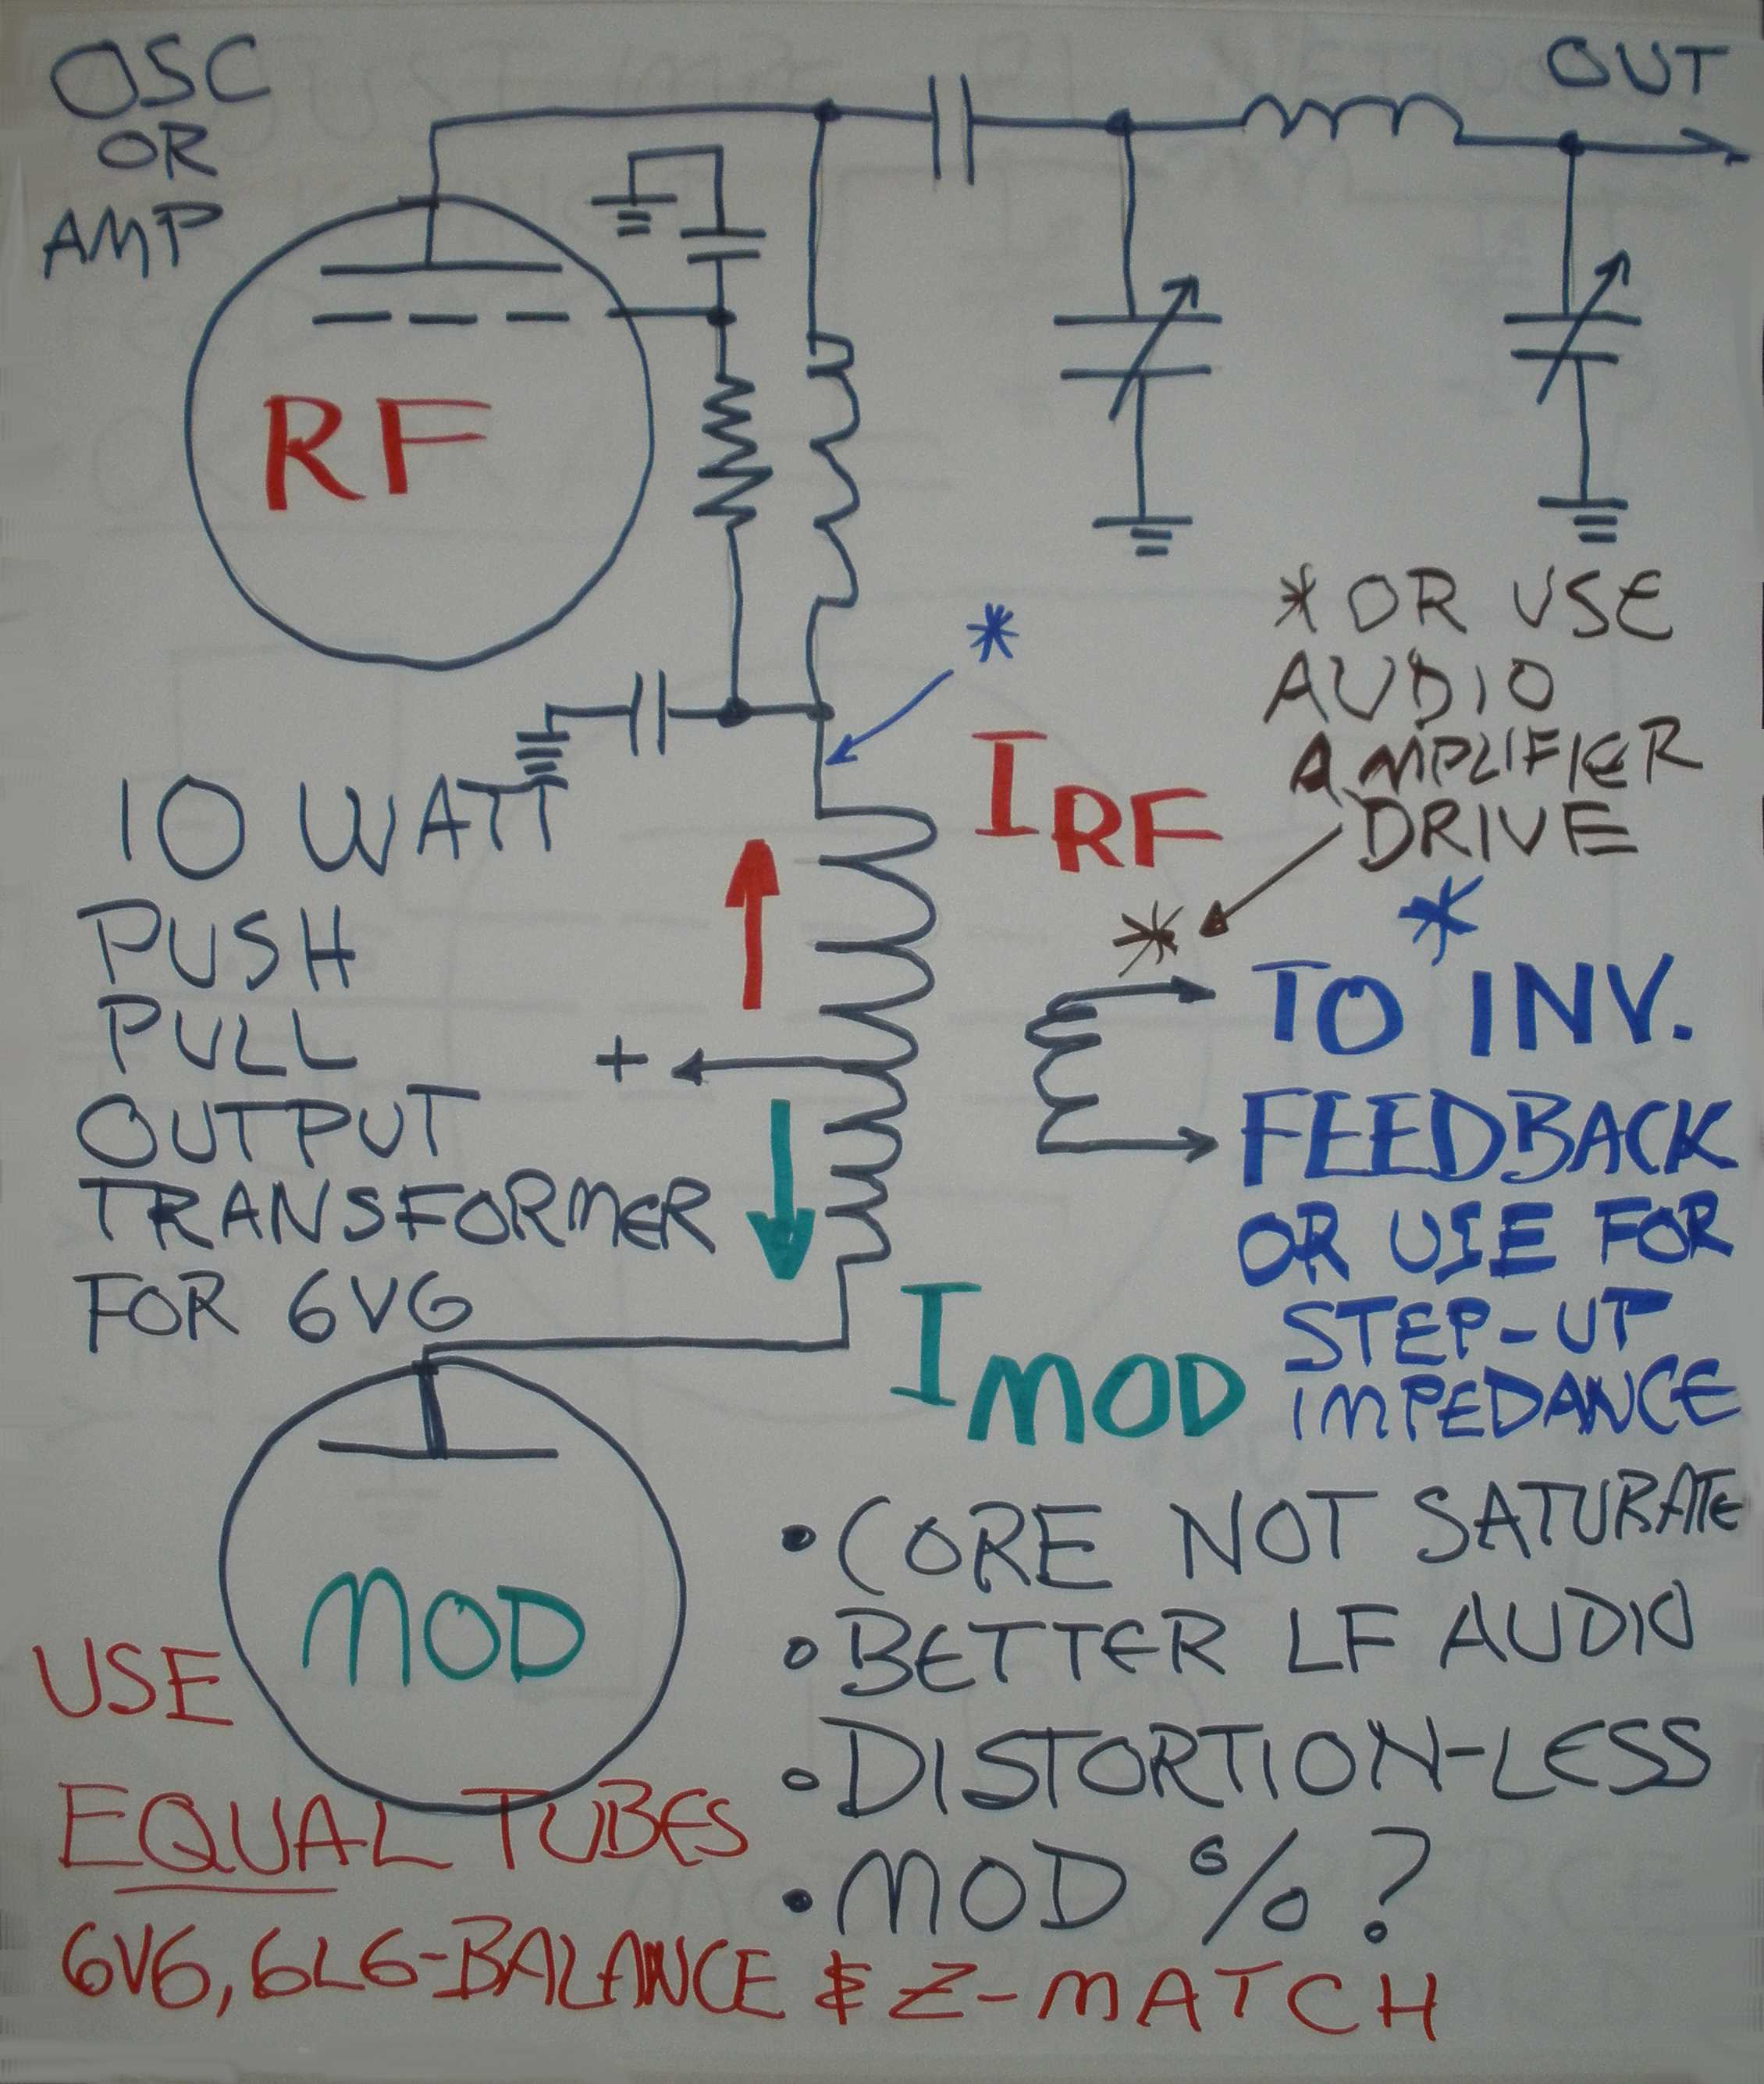 OSC
OR
AMP
OUT
RF
*
* OR USE
AUDIO
AMPLIFIER
DRIVE
IRF
10 WATT
PUSH
PULL
OUTPUT
TRANSFORMER
FOR 6V6
+
*
*
TO INV.
FEEDBACK
OR USE FOR
STEP-UP
IMPEDANCE
IMOD
MOD
• CORE NOT SATURATE
• BETTER LF AUDIO
• DISTORTION-LESS
• MOD %?
USE
EQUAL TUBES
6V6, 6L6-BALANCE & Z-MATCH